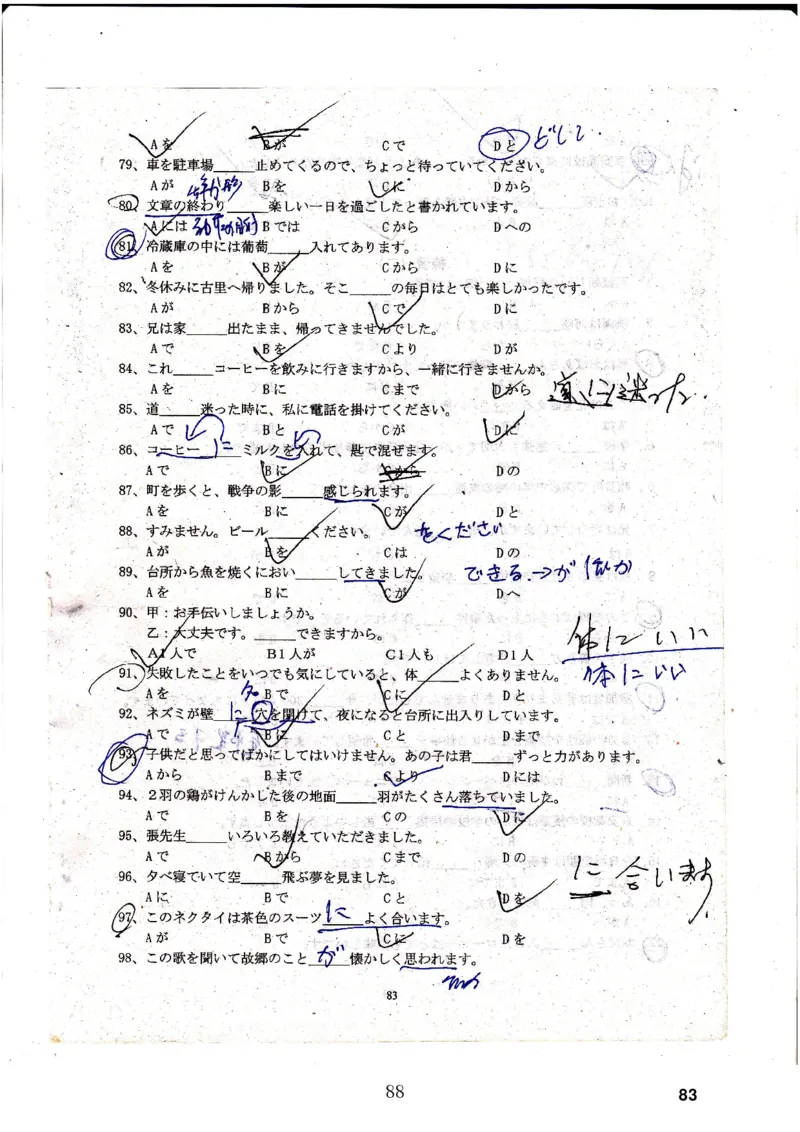 Aを Bが Cで Dと どして
79、車を駐車場____止めてくるので、ちょっと待っていてください。
Aが Bを Cに Dから
80、文章の終わり____楽しい一日を過ごしたと書かれています。
Aには Bでは Cから Dへの
81、冷蔵庫の中には葡萄____入れてあります。
Aを Bが Cから Dに
82、冬休みに古里へ帰りました。そこ____の毎日はとても楽しかったです。
Aが Bから Cで Dに
83、兄は家____出たまま、帰ってきませんでした。
Aで Bを Cより Dが
84、これ____コーヒーを飲みに行きますから、一緒に行きませんか。
Aを Bに Cまで Dから
道に迷った
85、道____迷った時に、私に電話を掛けてください。
Aで Bと Cが Dに
86、コーヒー に ミルクを入れて、匙で混ぜます。
Aで Bに Cから Dの
87、町を歩くと、戦争の影____感じられます。
Aを Bに Cが Dと
88、すみません。ビール____ください。 をください
Aが Bを Cは Dの
89、台所から魚を焼くにおい____してきました。 できる→が
Aを Bに Cが Dへ
90、甲：お手伝いしましょうか。
乙：大丈夫です。____できますから。
体にいい
A1人で B1人が C1人も D1人
91、失敗したことをいつでも気にしていると、体____よくありません。 体にいい
Aを Bで Cに Dと
92、ネズミが壁 に 穴を開けて、夜になると台所に出入りしています。
Aで Bに Cと Dまで
93、子供だと思ってばかにしてはいけません。あの子は君____ずっと力があります。
Aから Bまで Cより Dには
94、２羽の鶏がけんかした後の地面____羽がたくさん落ちていました。
Aで Bを Cの Dに
95、張先生____いろいろ教えていただきました。
Aで Bから Cまで Dの
96、夕べ寝ていて空____飛ぶ夢を見ました。
に合います
Aに Bで Cと Dを
97、このネクタイは茶色のスーツ に よく合います。
Aが Bで Cに Dを
98、この歌を聞いて故郷のこと が 懐かしく思われます。
83
88
83